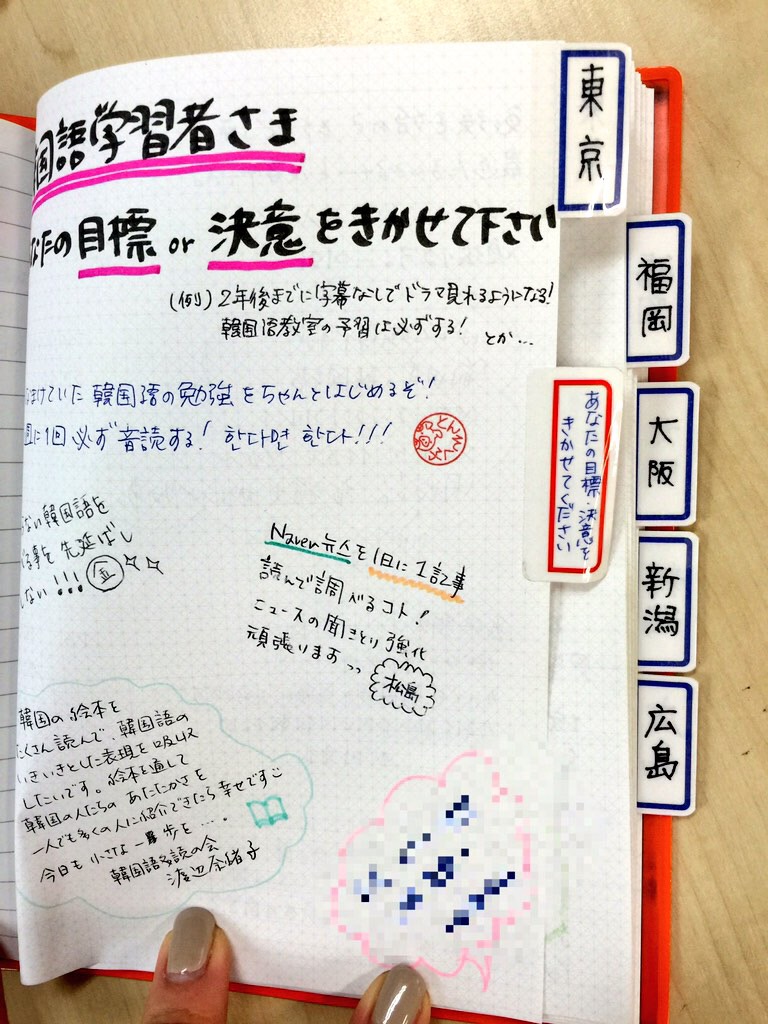 国語学習者さま
なたの目標 or 決意をきかせて下さい
(例) 2年後までに字幕なしでドラマ見れるようになる!
韓国語教室の予習は必ずする! とか…
まけていた韓国語の勉強をちゃんとはじめるぞ!
に1回必ず音読する! 한다면 한다!!!
ない韓国語を
る事を先延ばし
しない!!! 金
Naver 뉴스を1日に1記事
読んで調べるコト!
ニュースの聞きとり強化
頑張ります
松島
韓国の絵本を
たくさん読んで、韓国語の
いきいきとした表現を吸収
したいです。絵本を通して
韓国の人たちのあたたかさを
一人でも多くの人に紹介できたら幸せです
今日も小さな一歩を…。
韓国語多読の会
渡辺奈緒子
東京
福岡
あなたの目標・決意を
きかせてください
大阪
新潟
広島